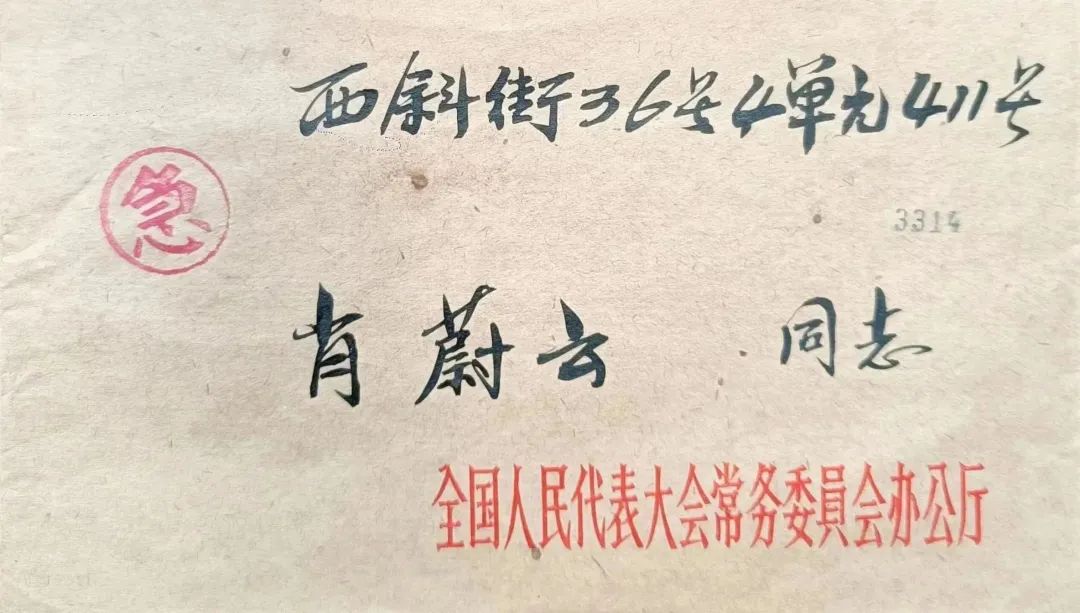 西斜街36号4单元411号
急
3314
肖蔚云 同志
全国人民代表大会常务委員会办公厅